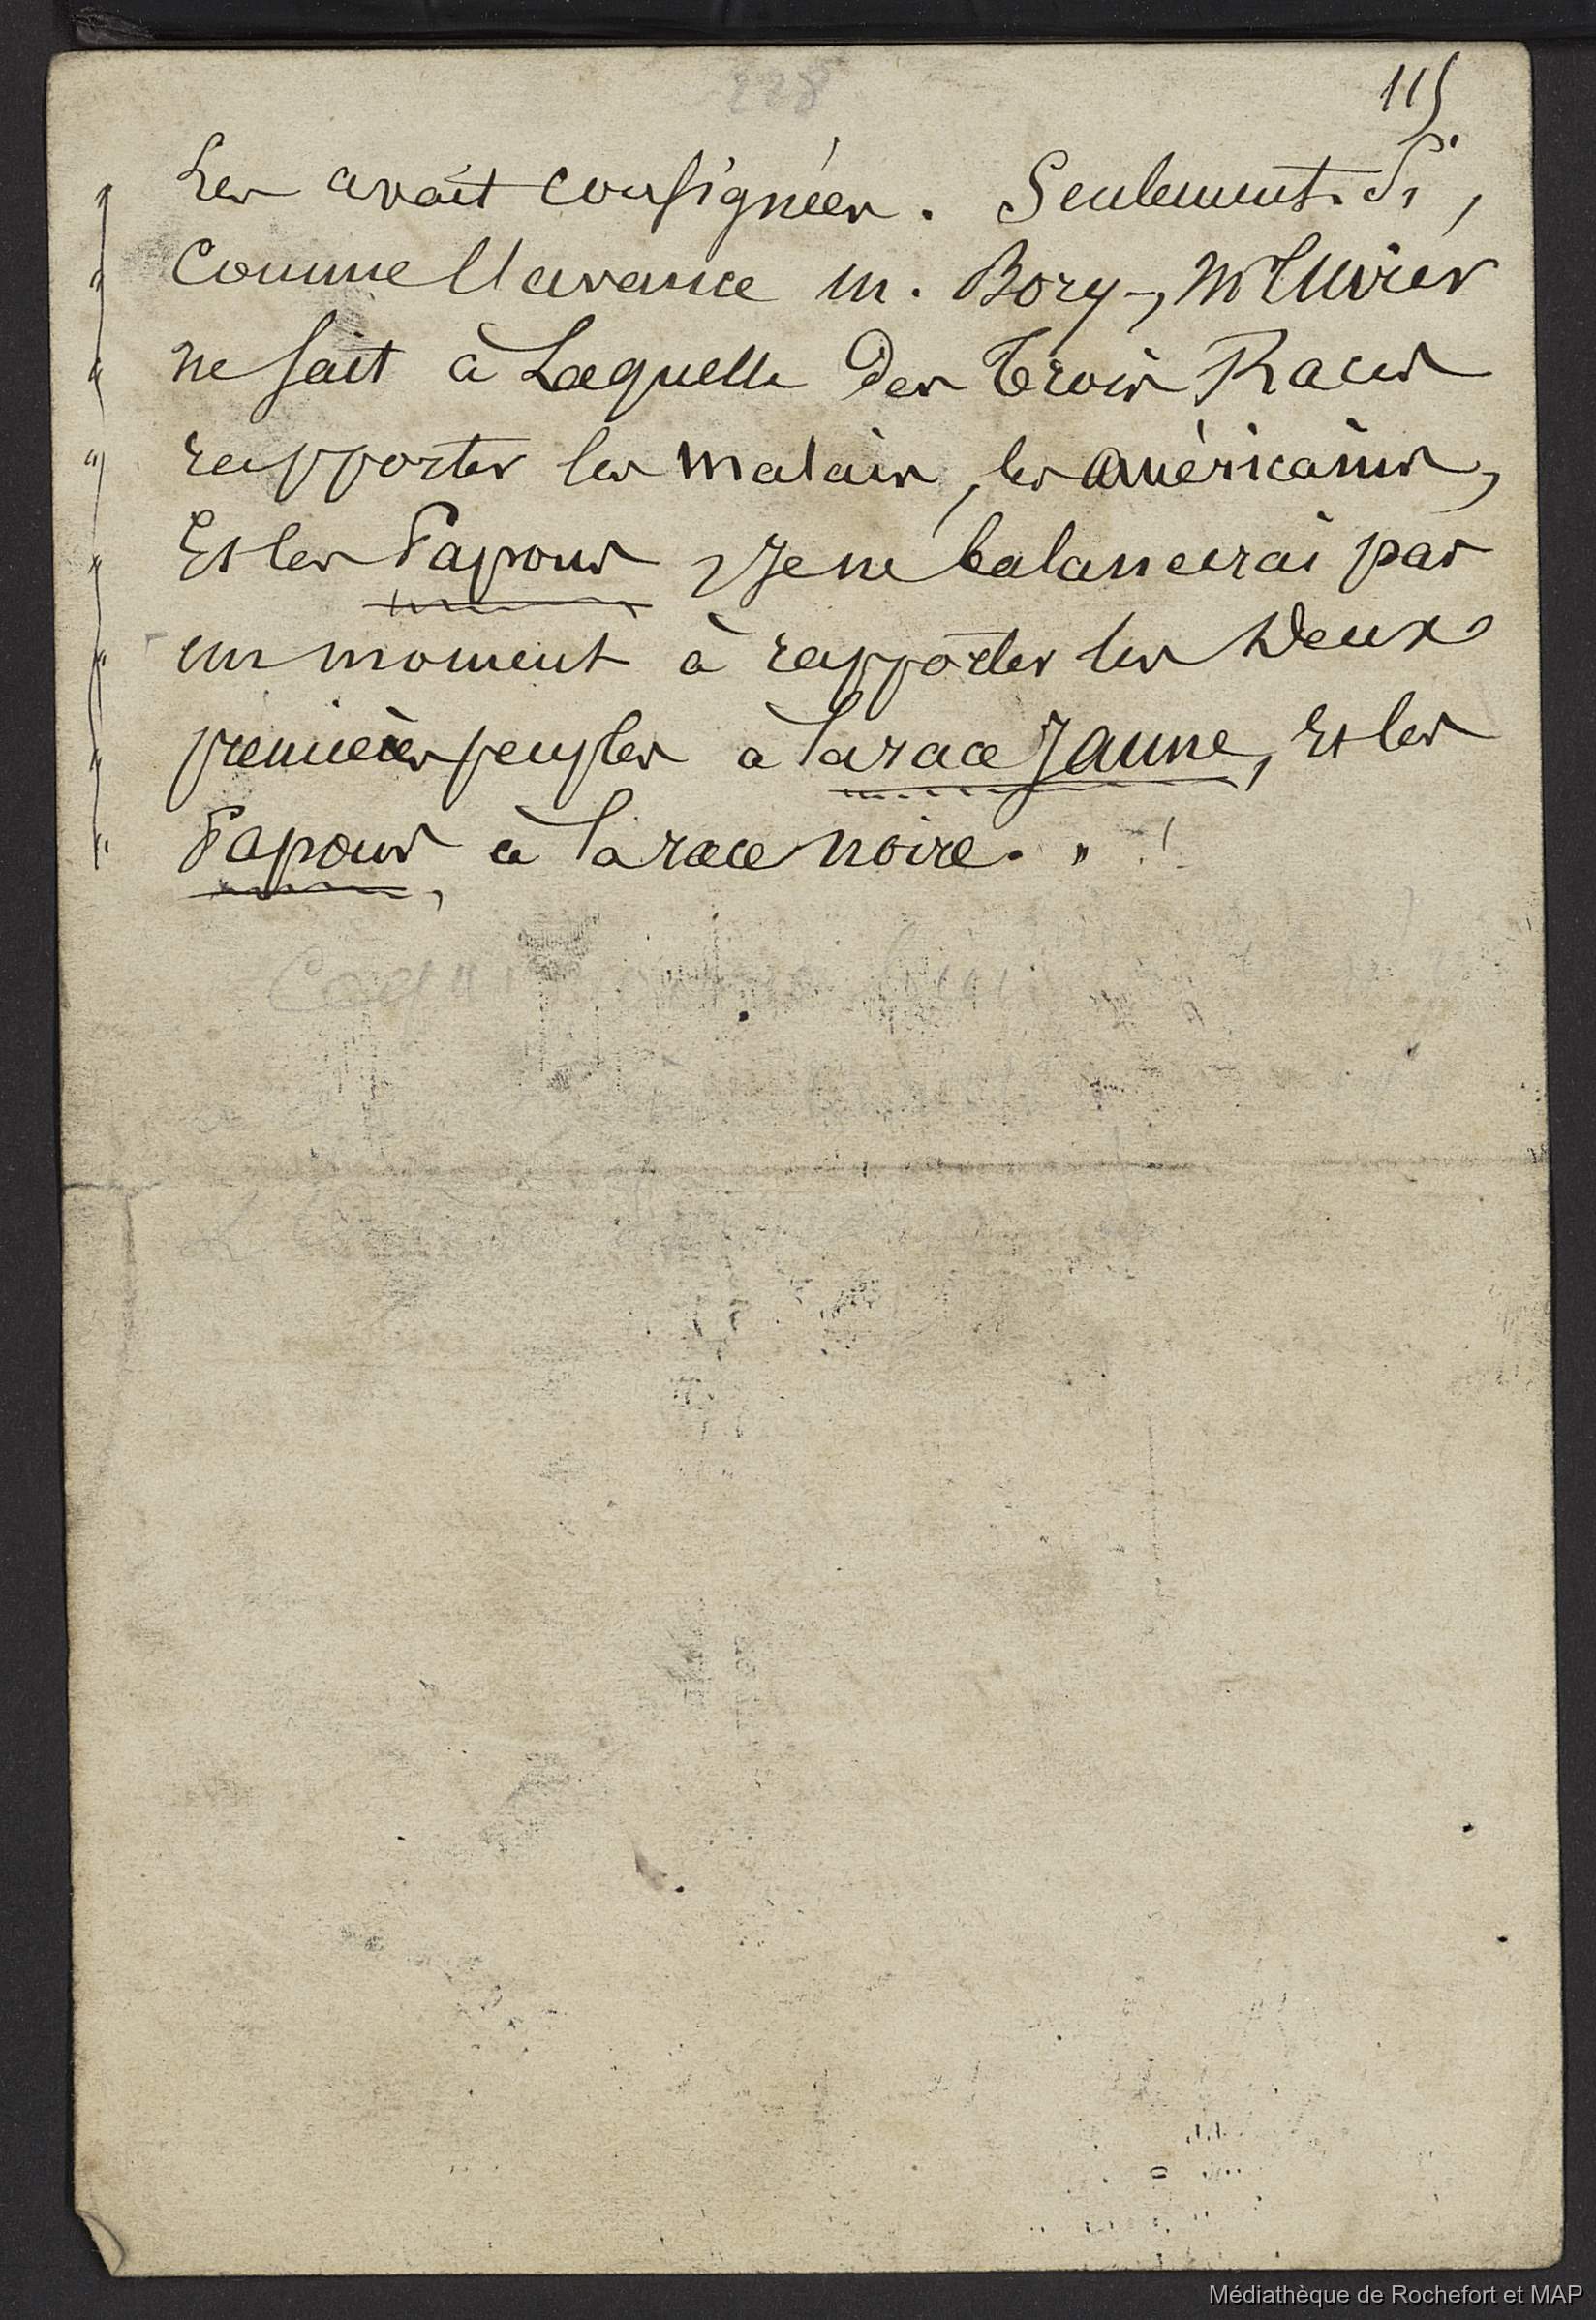 228
115
les avait consignées. Seulement. Si,
comme l'avance m. Bory-, Mr Cuvier
ne sait à laquelle des trois Races
rapporter les malais, les américains,
et les Papous, je ne balancerai pas
un moment à rapporter les deux
premiers peuples à la race Jaune, et les
Papous, à la race noire. "
Médiathèque de Rochefort et MAP